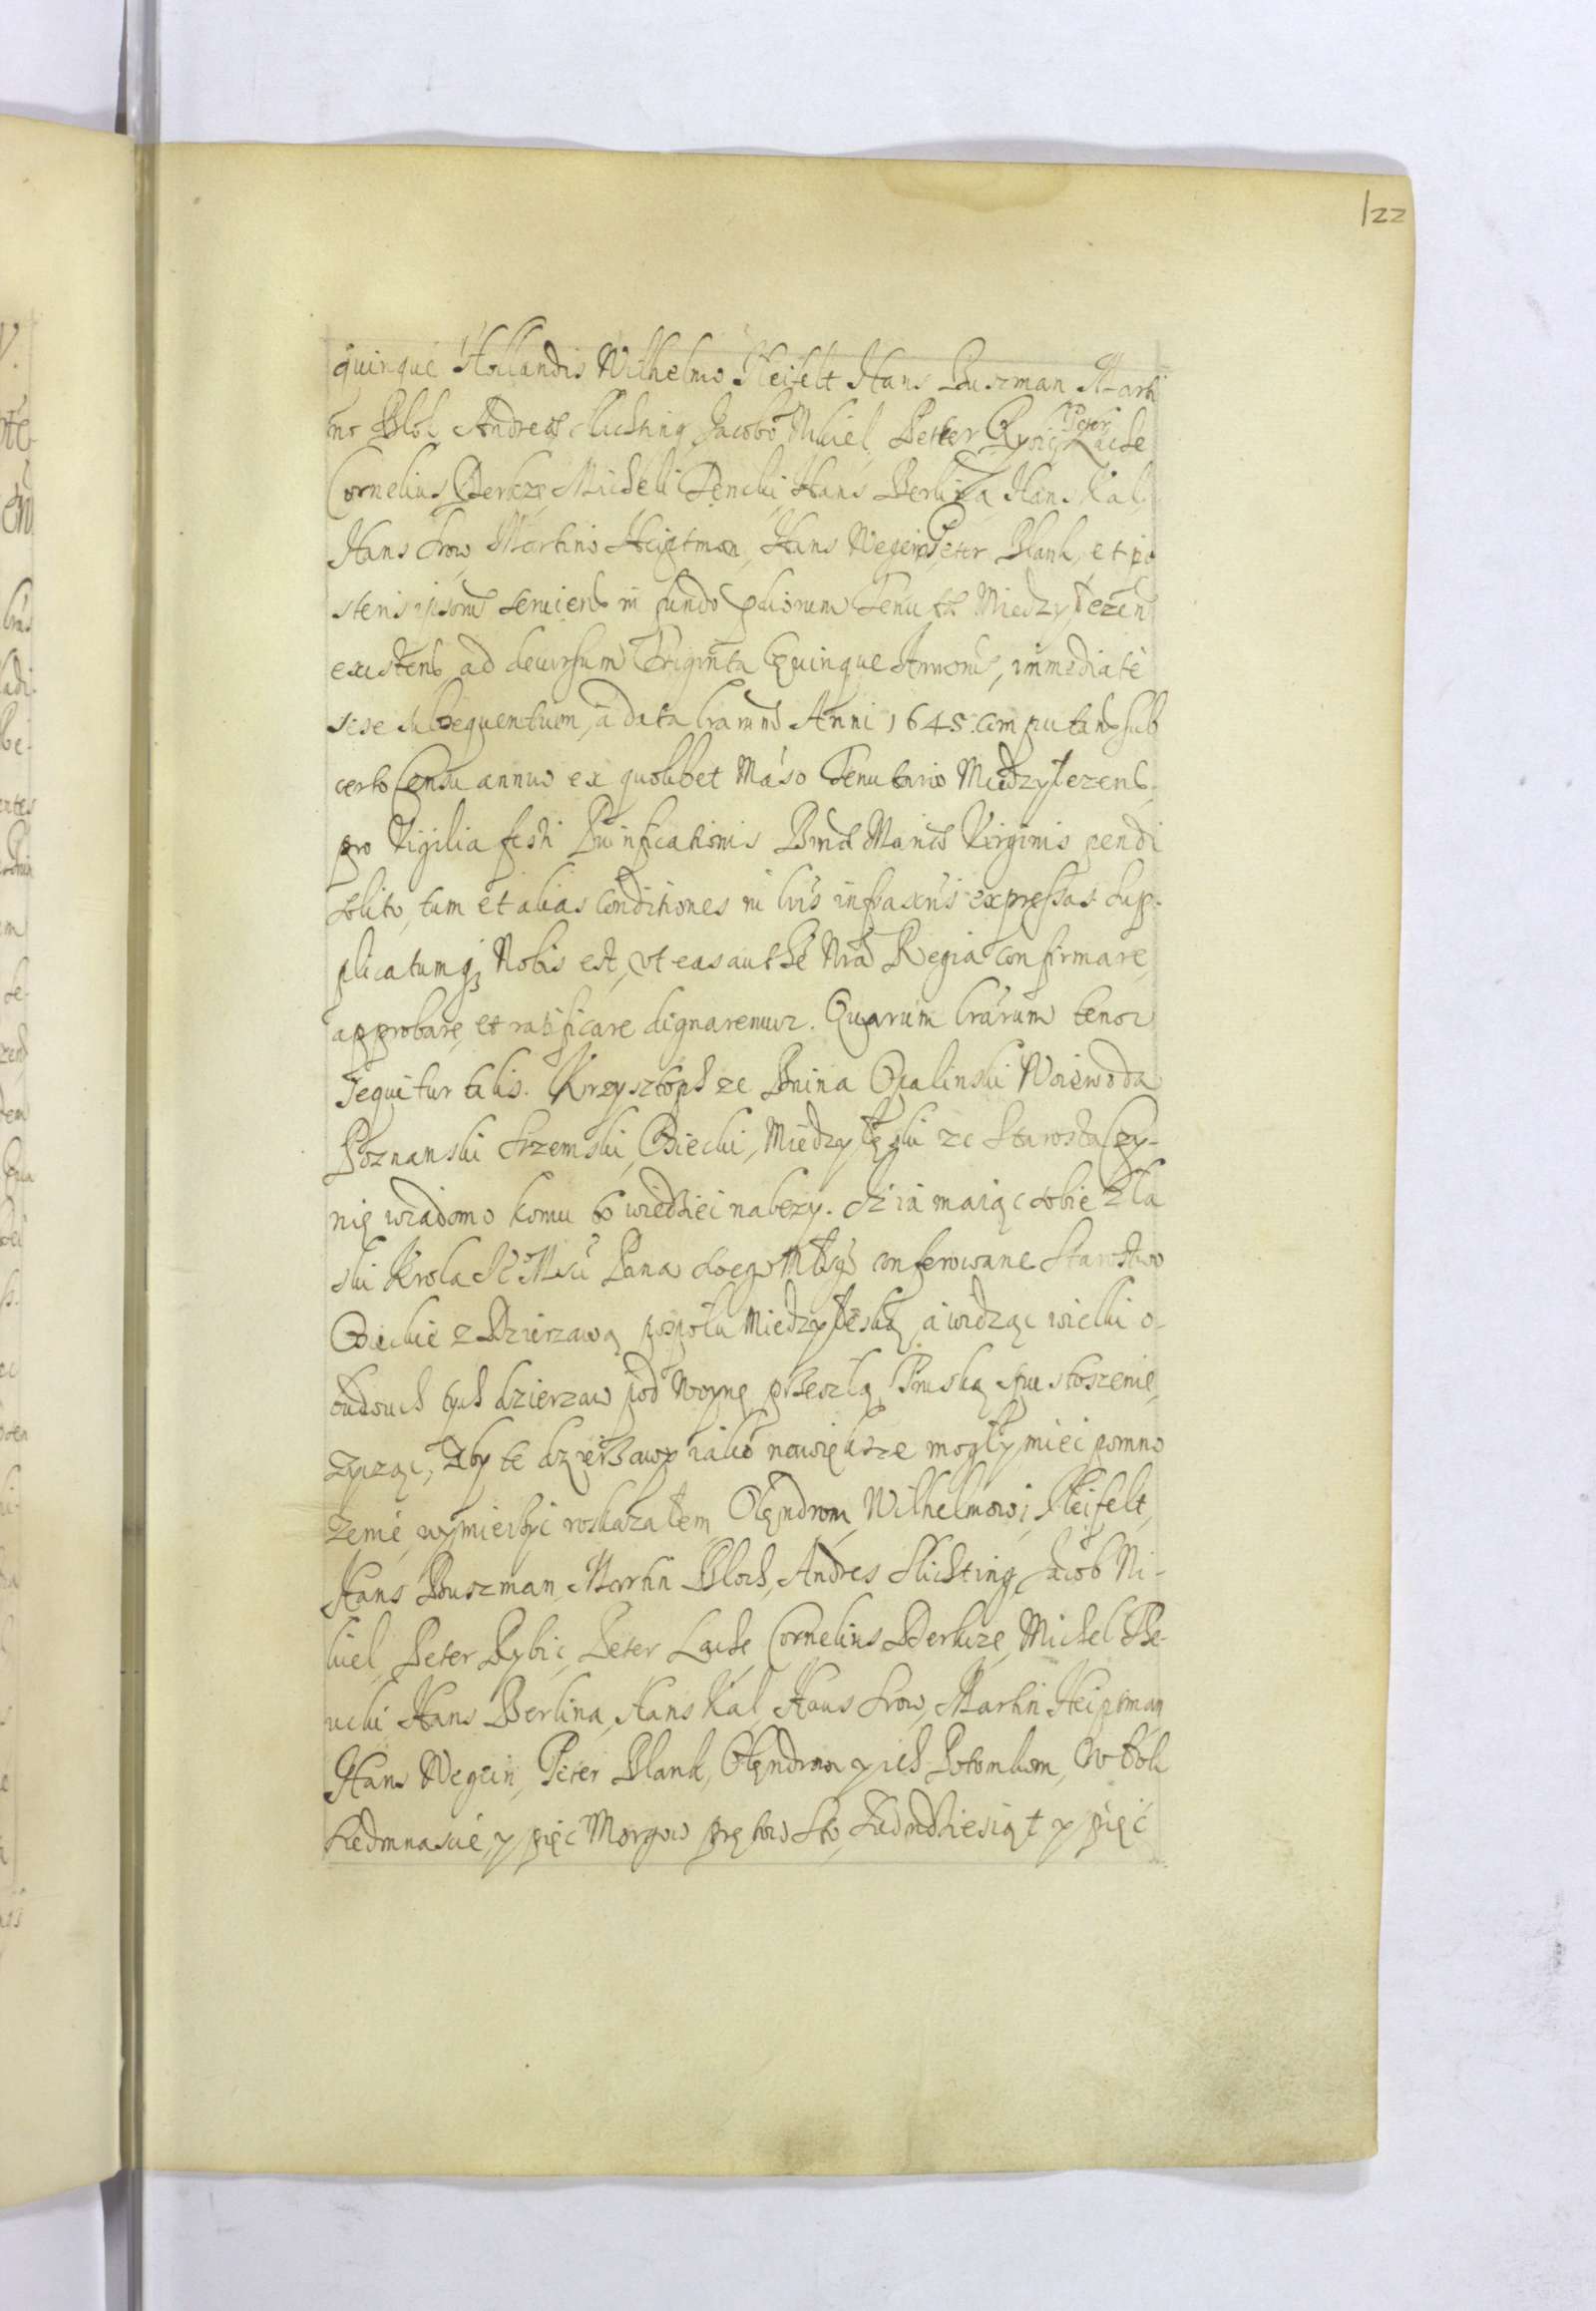 122
quinque Hollandis Wilhelmo Kleifelt Hans Buszman Marti
no Bloh Andreæ Slichting Jacobo Nikiel, Petter Rybić Peter Lache
Cornelius Berkze, Micheli Pencki Hans Berlina Hans Kal,
Hans Krow, Martino Heiptman, Hans Wegein Peter Blank, et po
steris ipsorum servient in fundo Tenutæ Miedzyłezen
existent ad decursum Triginta Quinque Annorum, immediatè
sese subsequentium, à data Anni 1645. computand sub
certo Censu annuo ex quolibet Manso Tenutario Miedzyłezens,
pro Vigilia festi Purificationis Mariæ Virginis pendi
solito, tum et alias conditiones in expressas. Sup-
plicatumq; Nobis est, vt eas authte Nra Regia confirmare,
approbare, et ratificare dignaremur. Quarum lrarum tenor
sequitur talis. Krzysztoph ze Bnina Opalinski Woiewoda
Poznanski Srzemski, Osiecki, Miedzyłęski ze Starosta Czy-
nię wiadomo komu to wiedziei nalezy. Iż ia maiąc sobie z ła
ski Krola Pana swego conferowane Starostwo
Osieckie z Dzierzawą pospołu Miedzyłeską, a widząc wielki o-
budwuch tych dzierzaw pod Woynę przeszłą Pruską spustoszenie,
zycząc, zby te dzierzawy iako nawiększe mogły miec pomno
zenie, wymierzyc roskazałem Olęndrom Wilhelmowi Kleifelt,
Hans Buszman, Martin Bloch, Andres Slichting Jacob Ni-
kiel, Peter Rybic, Peter Lache, Cornelius Berkze, Michel Pe-
ncki Hans Berlina, Hans Kal, Hans Krow, Martin Heiptman
Hans Wegein, Peter Blank, Olęndrom y ich Potomkom, Włok
siedmnascie, y pięć Morgow prętow sto, siedmdziesiąt y pięć